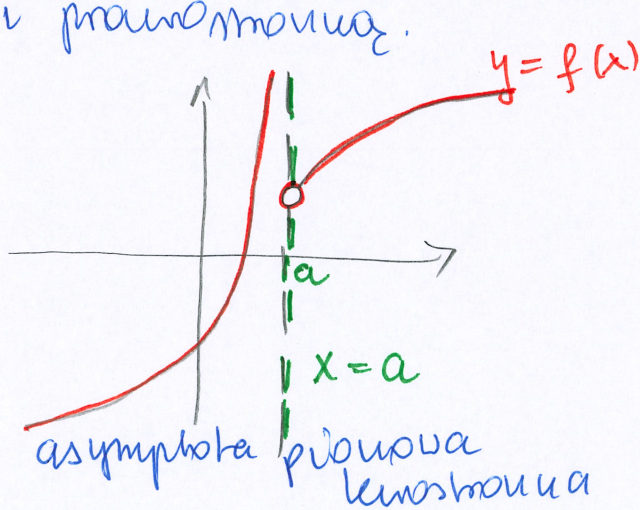 i prawostronną.
y = f(x)
a
x = a
asymptota pionowa
lewostronna